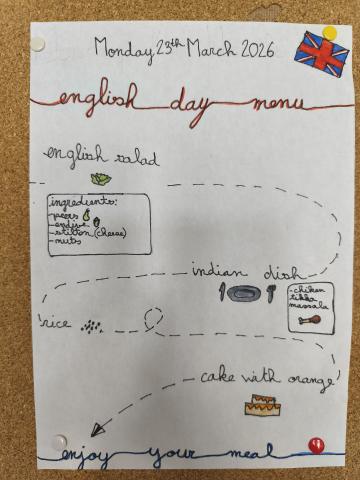 Monday 23th March 2026
english day menu
english salad
ingredients:
-pears
-endive
-stilton (cheese)
-nuts
indian dish
-chiken
tikka
massala
rice
cake with orange
enjoy your meal